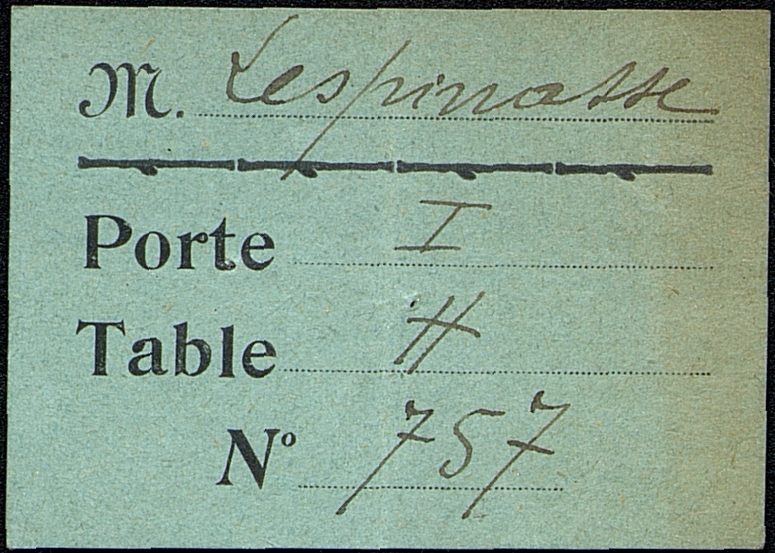 M. Lespinasse
Porte I
Table H
Nº 757